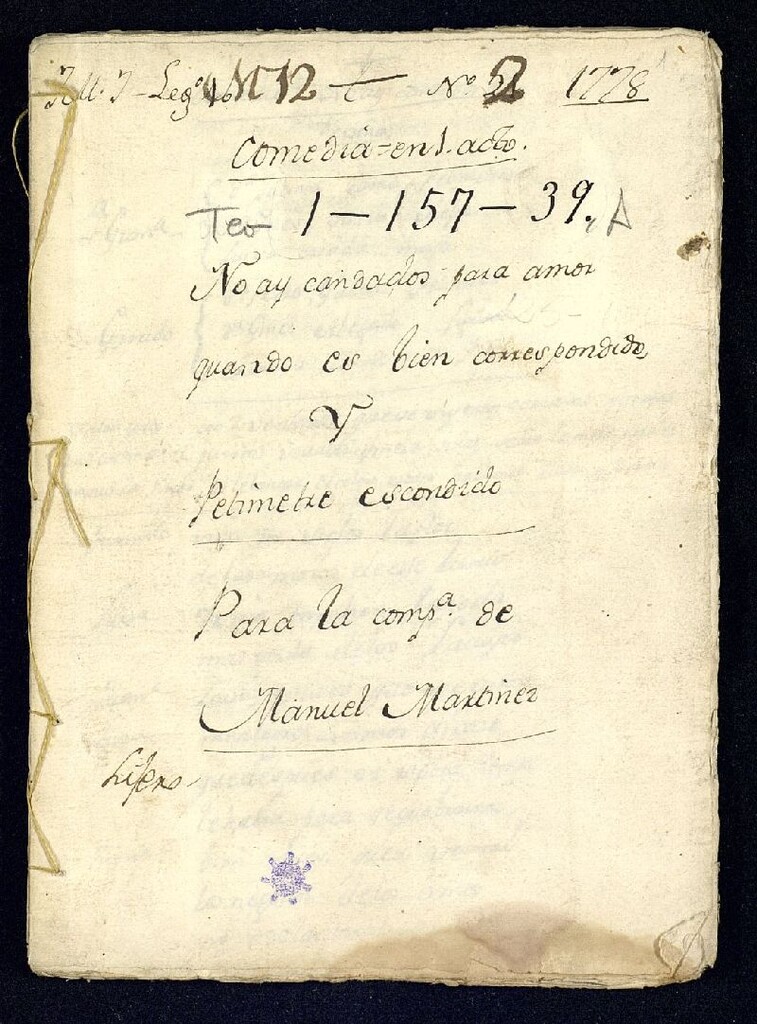 Leg.º M12 t Nº 2 1778
Comedia = en 1. acto.
Teo 1 - 157 - 39, A
No ay candados para amor
quando es bien correspondido,
Y
Petimetre escondido
Para la comp.ª de
Manuel Martinez